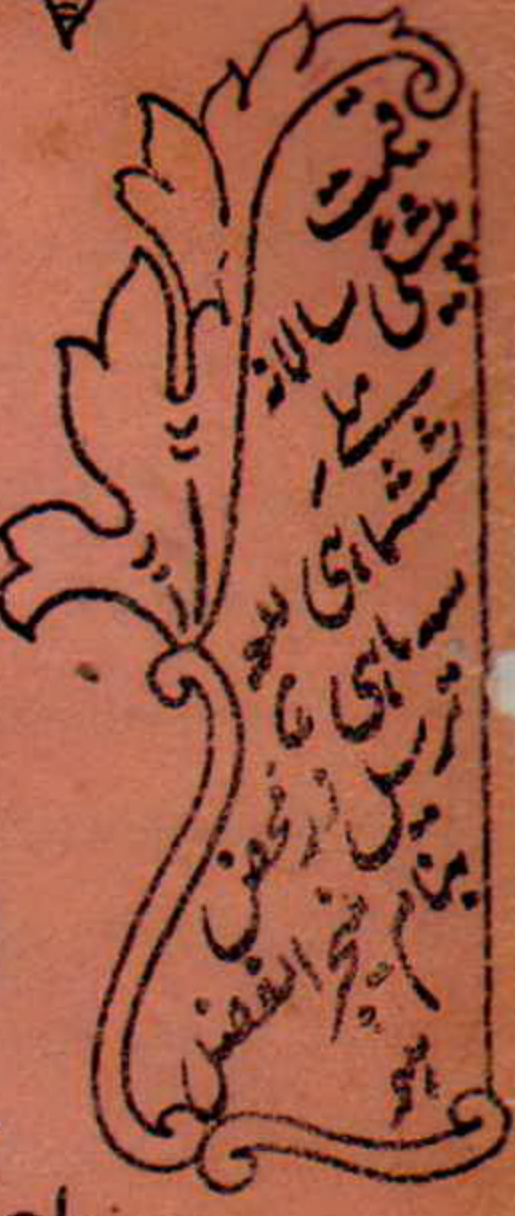 قیمت
پیشگی سالانہ
ششماہی
سہ ماہی
ترسیل زر محض
بنام منیجر الفضل
ہو